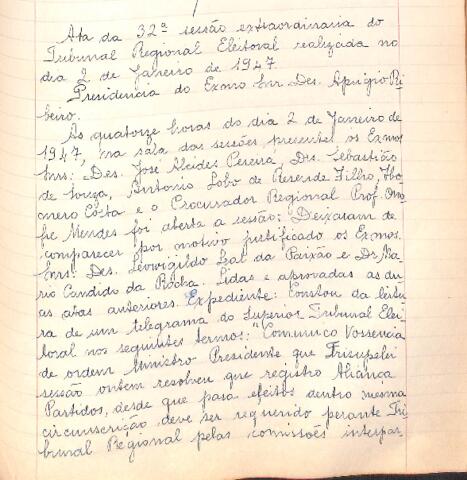 Ata da 32ª sessão extraordinaria do
Tribunal Regional Eleitoral realizada no
dia 2 de Janeiro de 1947.
Presidencia do Exmo Snr. Des. Aprigio Ri-
beiro.
Ás quatorze horas do dia 2 de Janeiro de
1947, na sala das sessões, presentes os Exmos
Snrs: Des. José Alcides Pereira, Drs. Sebastião
de Souza, Antonio Lobo de Resende Filho, Ho-
mero Costa e o Procurador Regional Prof. Ono-
fre Mendes foi aberta a sessão; Deixaram de
comparecer por motivo justificado os Exmos.
Snrs. Des. Leovigildo Leal da Paixão e Dr. Ma-
rio Candido da Rocha. Lidas e aprovadas as du-
as atas anteriores. Expediente: Constou da leitu-
ra de um telegrama do Superior Tribunal Elei-
toral nos seguintes termos: "Comunico Vossencia
de ordem Ministro Presidente que Trisupelei
sessão ontem resolveu que registro Aliança
Partidos, desde que para efeitos dentro mesma
circunscrição deve ser requerido perante Tri-
bunal Regional pelas comissões interpar-